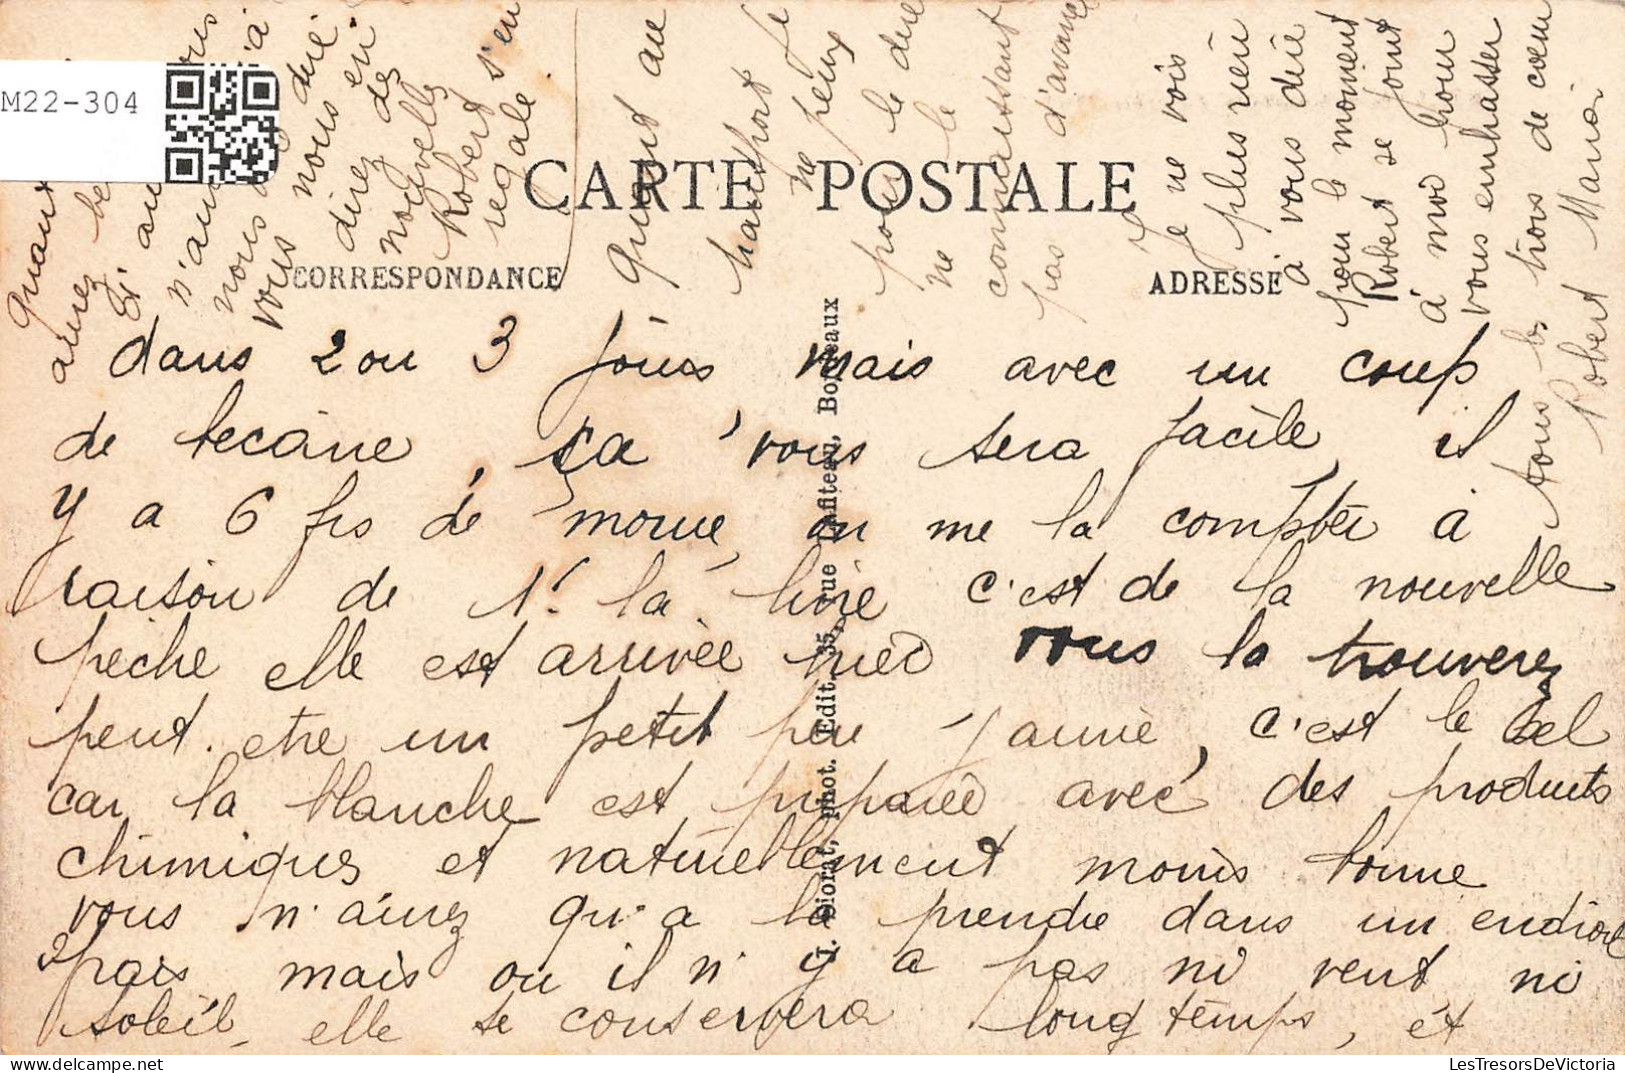 M22-304
CARTE POSTALE
CORRESPONDANCE
ADRESSE
dans 2 ou 3 jours mais avec un coup
de becane, ça vous sera facile, il
y a 6 frs de morue, on me la compter à
raison de 1f. la livre c'est de la nouvelle
pèche elle est arrivée vous la trouverez
peut. etre un petit peu jaune, c'est le sel
car la blanche est preparée avec des produits
chimiques et naturellement moins bonne
vous n'aurez qu'a la prendre dans un endroit
frais mais ou il n'y a pas ni vent ni
soleil, elle se conservera longtemps, et
Quant
aurez
Et
n'au
nous
vous
nous dire
nous en
direz des
nouvelles
Robert s'en
regale.
Quant au
transport je
ne peux
pas le dire
ne le
connaissant
pas d'avance
Je ne vois
plus rien
à vous dire
pour le moment
Robert se joint
à moi pour
vous embrasser
tous les trois de cœur
Robert Marie
G. Diorat, phot. Edit. 35, rue Lafiteau, Bordeaux
LesTresorsDeVictoria